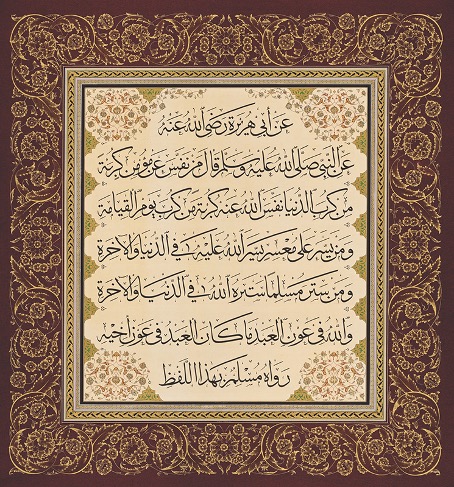 عن أبي هريرة رضي الله عنه
عن النبي صلى الله عليه وسلم قال من نفس عن مؤمن كربة
من كرب الدنيا نفس الله عنه كربة من كرب يوم القيامة
ومن يسر على معسر يسر الله عليه في الدنيا والآخرة
ومن ستر مسلما ستره الله في الدنيا والآخرة
والله في عون العبد ما كان العبد في عون أخيه
رواه مسلم بهذا اللفظ